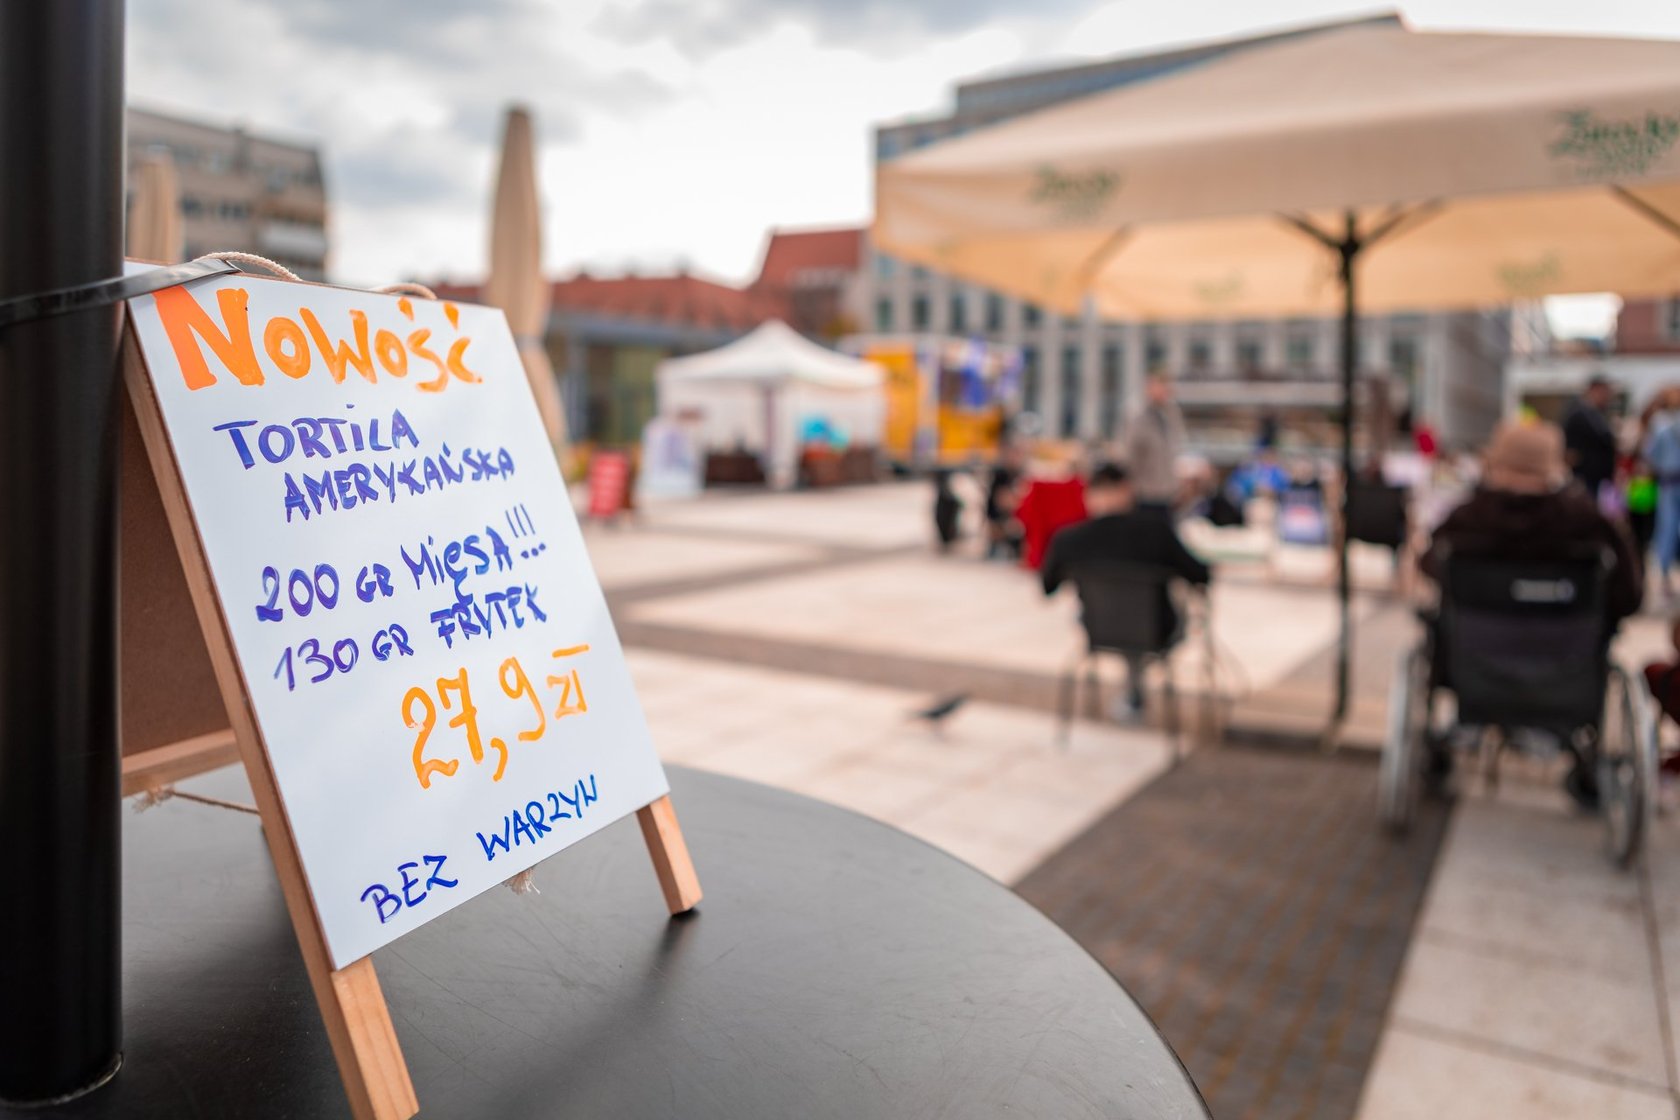 Nowość
TORTILA
AMERYKAŃSKA
200 GR MięSA!!!
130 GR FRYTEK
27,9 zł
BEZ WARZYN
Żywiec